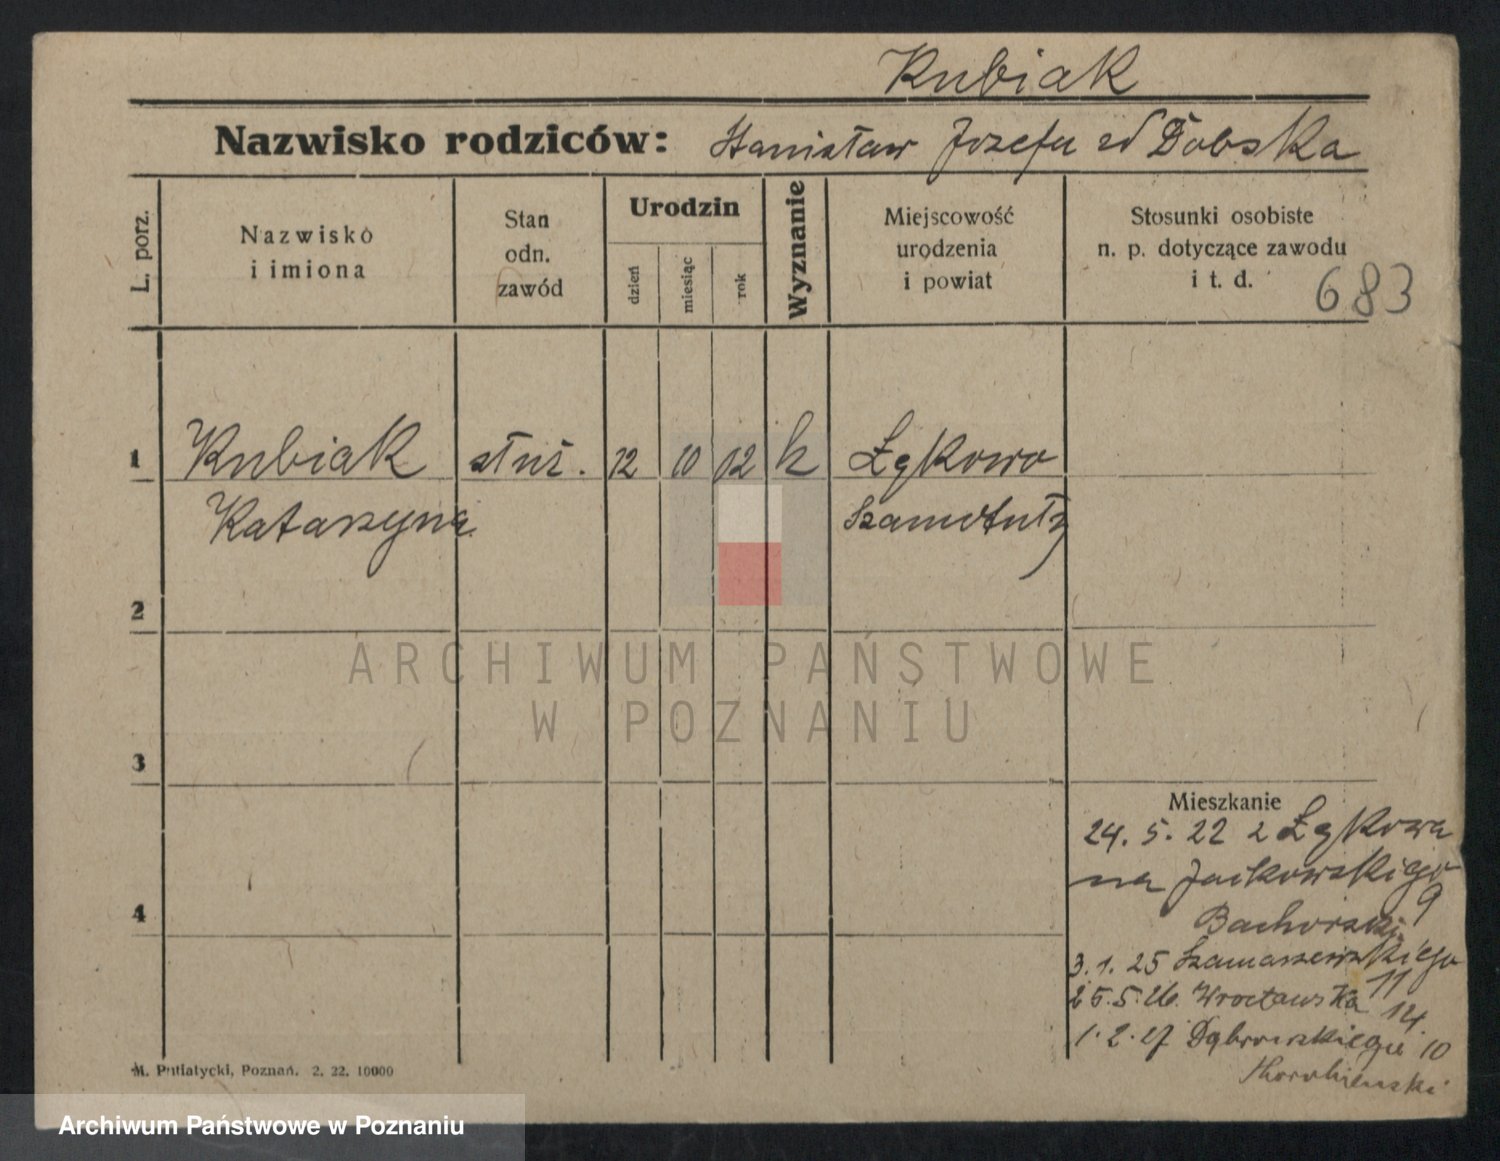 Kubiak
Nazwisko rodziców: Stanisław Józefa zd Dobska
L. porz.
Nazwisko i imiona
Stan odn. zawód
Urodzin
dzień
miesiąc
rok
Wyznanie
Miejscowość urodzenia i powiat
Stosunki osobiste n. p. dotyczące zawodu i t. d.
683
1 Kubiak służ. 12 10 12 k
Katarzyna Szamotuły
2
ARCHIWUM PAŃSTWOWE
W POZNANIU
3
Mieszkanie
24. 5. 22 z
na Jackowskiego 9
4
3. 1. 25 Szamarzewskiego 11
25. 5. 26. Wrocławska 14.
1. 2. 27 Dąbrowskiego 10
M. Putiatycki, Poznań. 2. 22. 10000
Archiwum Państwowe w Poznaniu